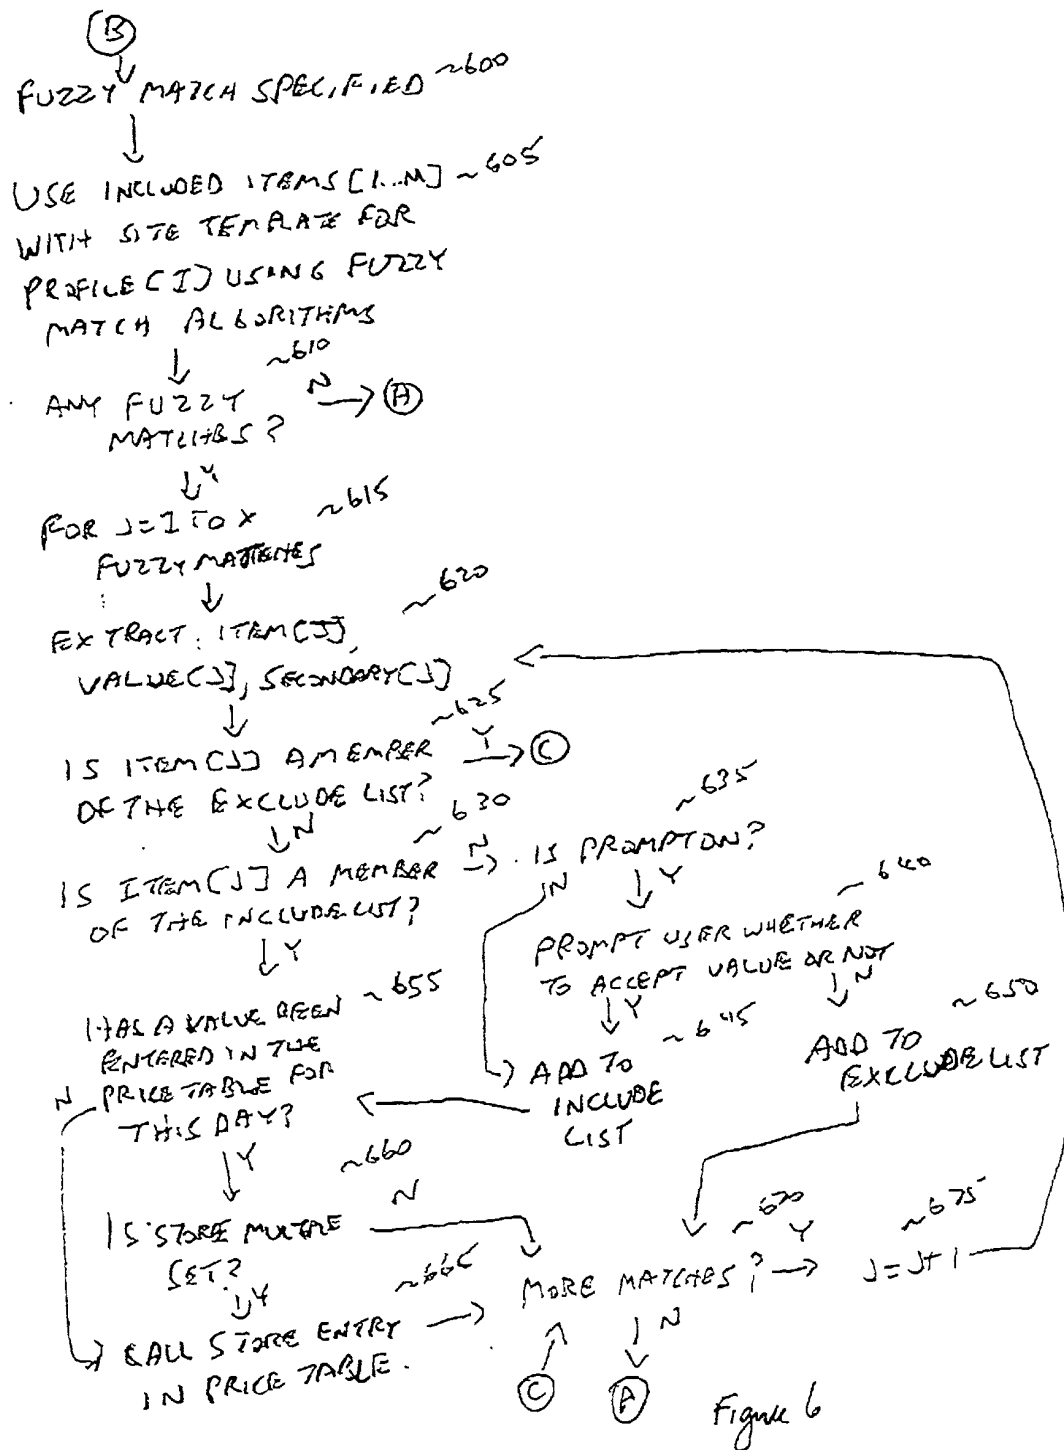 B
FUZZY MATCH SPECIFIED ~600
USE INCLUDED ITEMS [1...M] ~605
WITH SITE TEMPLATE FOR
PROFILE[I] USING FUZZY
MATCH ALGORITHMS
~610
ANY FUZZY N → A
MATCHES?
Y
FOR J=1 TO X ~615
FUZZY MATCHES
~620
EXTRACT: ITEM[J],
VALUE[J], SECONDARY[J]
~625
IS ITEM[J] A MEMBER Y → C
OF THE EXCLUDE LIST?
N
~630
IS ITEM[J] A MEMBER N →
OF THE INCLUDE LIST?
Y
~635
IS PROMPT ON?
N
Y
~640
PROMPT USER WHETHER
TO ACCEPT VALUE OR NOT
Y
N
~645
ADD TO
INCLUDE
LIST
~650
ADD TO
EXCLUDE LIST
HAS A VALUE BEEN ~655
ENTERED IN THE
N PRICE TABLE FOR
THIS DAY?
Y
~660
IS STORE MULTIPLE N
SET?
Y
~665
CALL STORE ENTRY
IN PRICE TABLE.
~670
MORE MATCHES? Y →
~675
J=J+1
N
C
A
Figure 6